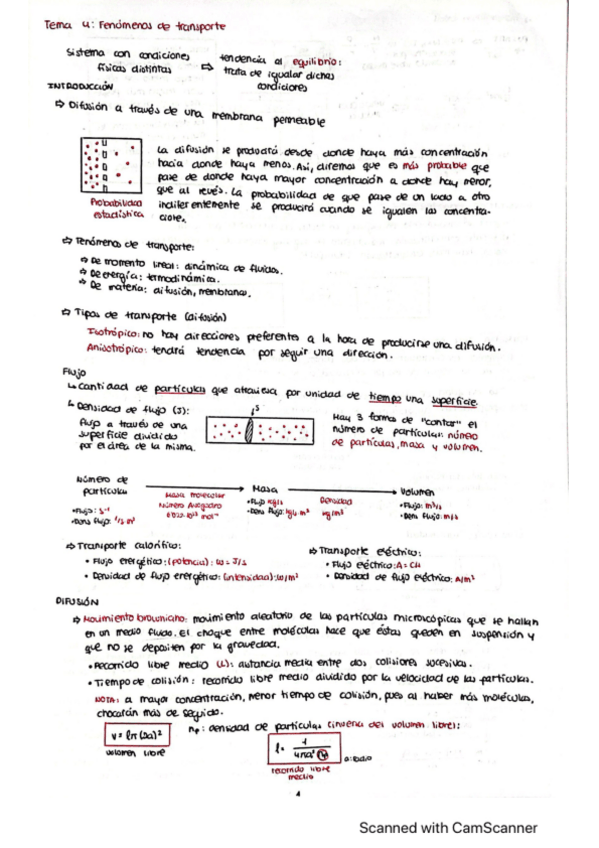 Tema 4: Fenómenos de transporte
Sistema con condiciones físicas distintas ⇨ tendencia al equilibrio: trata de igualar dichas condiciones
INTRODUCCIÓN
⇨ Difusión a través de una membrana permeable
La difusión se producirá desde donde haya más concentración
hacia donde haya menos. Así, diremos que es más probable que
pase de donde haya mayor concentración a donde hay menor,
que al revés. La probabilidad de que pase de un lado a otro
indiferentemente se producirá cuando se igualen las concentra-
ciones.
Probabilidad
estadística
⇨ Fenómenos de transporte:
⇨ De momento lineal: dinámica de fluidos.
⇨ De energía: termodinámica.
⇨ De materia: difusión, membranas.
⇨ Tipos de transporte (difusión)
Isotrópico: no hay direcciones preferentes a la hora de producirse una difusión.
Anisotrópico: tendrá tendencia por seguir una dirección.
Flujo
↳ Cantidad de partículas que atraviesa por unidad de tiempo una superficie.
↳ Densidad de flujo (J):
flujo a través de una
superficie dividido
por el área de la misma.
S
Hay 3 formas de "contar" el
número de partículas: número
de partículas, masa y volumen.
Número de
partículas
Masa molecular
Número Avogadro
Masa
Densidad
kg/m³
Volumen
•Flujo: s⁻¹
•Dens flujo:
•Flujo kg/s
•Dens flujo:
•Flujo: m³/s
•Dens flujo: m/s
⇨ Transporte calorífico:
• Flujo energético: (potencia): W = J/s
• Densidad de flujo energético: (intensidad): W/m²
⇨ Transporte eléctrico:
• Flujo eléctrico: A =
• Densidad de flujo eléctrico: A/m²
DIFUSIÓN
⇨ Movimiento browniano: movimiento aleatorio de las partículas microscópicas que se hallan
en un medio fluido. El choque entre moléculas hace que éstas queden en suspensión y
que no se depositen por la gravedad.
• Recorrido libre medio (L): distancia media entre dos colisiones sucesivas.
• Tiempo de colisión: recorrido libre medio dividido por la velocidad de las partículas.
NOTA: a mayor concentración, menor tiempo de colisión, pues al haber más moléculas,
chocarán más de seguido.
V = lπ(2a)²
volumen libre
: densidad de partículas (inversa del volumen libre):
l = 1
recorrido libre
medio
a: radio
1
Scanned with CamScanner